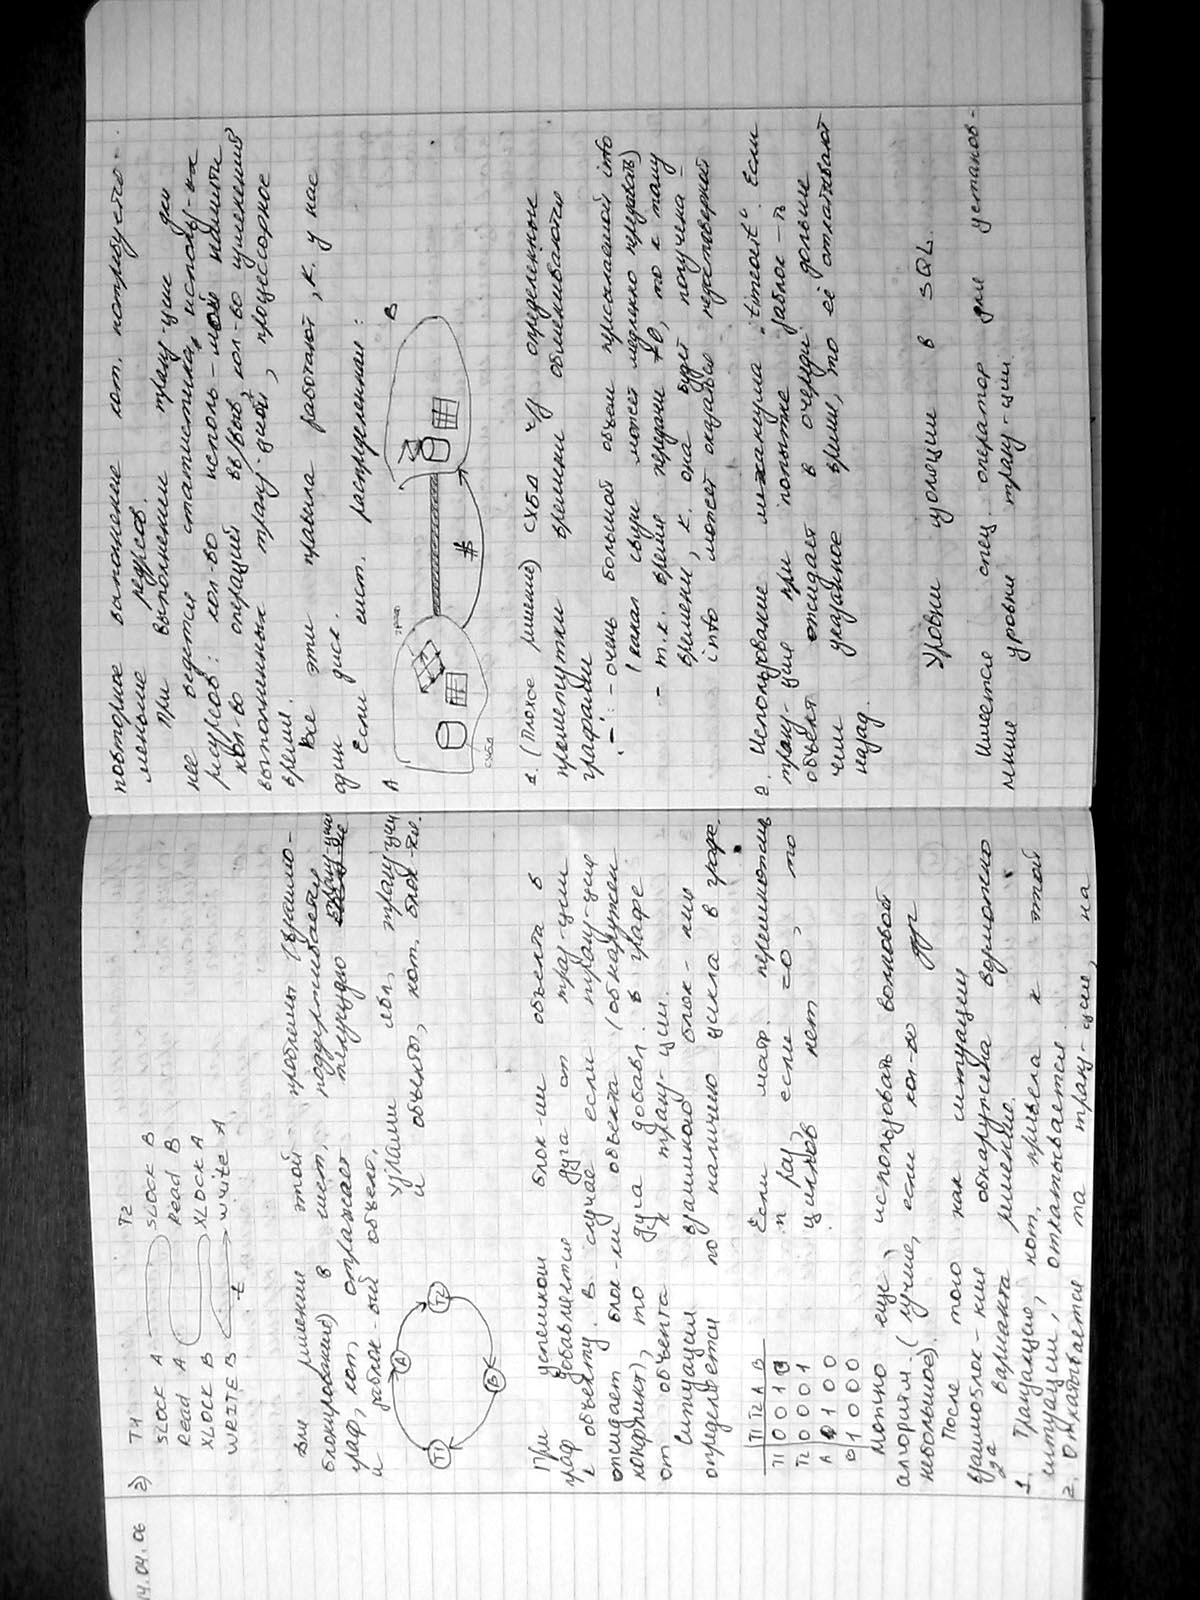 14.04.06
2) T1 T2
SLock A SLock B
Read A Read B
XLock B XLock A
WRITE B write A
t
Для решения этой проблемы (взаимо-
блокирование) в сист. поддерживается
граф, кот. отражает текущую транз-ции
и заблок-ый объект.
Узлами явл. транз-ции
и объекты, кот. блок-ны.
T1 A T2 B
При успешном блок-ии объекта в
граф добавляется дуга от транз-ции
к объекту. В случае если транз-ция
ожидает блок-ки объекта (обнаружен
конфликт), то дуга добавл. в графе
от объекта к транз-ции.
Ситуация взаимного блок-ния
определяется по наличию цикла в графе.
T1 T2 A B
T1 0 0 1 0
T2 0 0 0 1
A 0 1 0 0
B 1 0 0 0
Если матр. перемножить
n раз если =0, то
циклов нет
Можно еще использовать волновой
алгоритм. (лучше, если кол-во дуг
небольшое).
После того как ситуация
взаимоблок-ние обнаружена возможно
2а варианта решения.
1. Транзакция, кот. привела к этой
ситуации, откатывается.
2. Откатывается та транз-ция, на
повторное выполнение кот. потребуется
меньше ресурсов.
При выполнении транз-ции для
нее ведется статистика использ-ия
ресурсов: кол-во исполь-мой памяти
кол-во операций вв/выв, кол-во изменений
выполненных транз-цией, процессорное
время.
Все эти правила работают, к. у нас
один диск.
Если сист. распределенная:
A B
СУБД
1. (Плохое решение) СУБД ч/з определенные
промежутки времени обмениваются
графами
"–": - очень большой объем присылаемой info
(канал связи может медленно передавать)
- т.к. время передачи ≠0, то к тому
времени, к. она будет получена -
info может оказаться недостоверной
2. Использование механизма "timeout". Если
транз-ция при попытке заблок-ть
объект ожидает в очереди дольше
чем указанное время, то её откатывают
назад.
Уровни изоляции в SQL.
Имеется спец. оператор для установ-
ления уровня транз-ции.